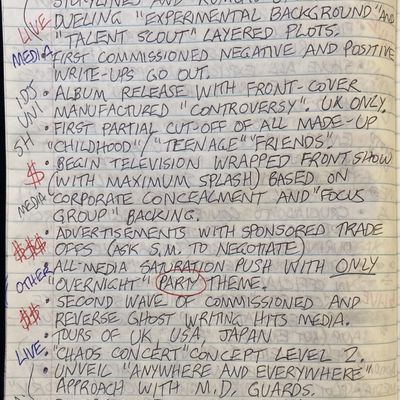 DUELING "EXPERIMENTAL BACKGROUND" AND
LIVE "TALENT SCOUT" LAYERED PLOTS.
MEDIA • FIRST COMMISSIONED NEGATIVE AND POSITIVE
WRITE-UPS GO OUT.
• ALBUM RELEASE WITH FRONT-COVER
UNI MANUFACTURED "CONTROVERSY". UK ONLY.
SH • FIRST PARTIAL CUT-OFF OF ALL MADE-UP
"CHILDHOOD"/"TEENAGE" "FRIENDS".
$ • BEGIN TELEVISION WRAPPED FRONT SHOW
(WITH MAXIMUM SPLASH) BASED ON
MEDIA CORPORATE CONCEALMENT AND "FOCUS
GROUP" BACKING.
• ADVERTISEMENTS WITH SPONSORED TRADE
$$$ OFFS (ASK S.M. TO NEGOTIATE)
OTHER • ALL-MEDIA SATURATION PUSH WITH ONLY
"OVERNIGHT" PARTY THEME.
• SECOND WAVE OF COMMISSIONED AND
$$ REVERSE GHOST WRITING HITS MEDIA.
• TOURS OF UK, USA, JAPAN
LIVE • "CHAOS CONCERT" CONCEPT LEVEL 2.
• UNVEIL "ANYWHERE AND EVERYWHERE"
APPROACH WITH M.D. GUARDS.